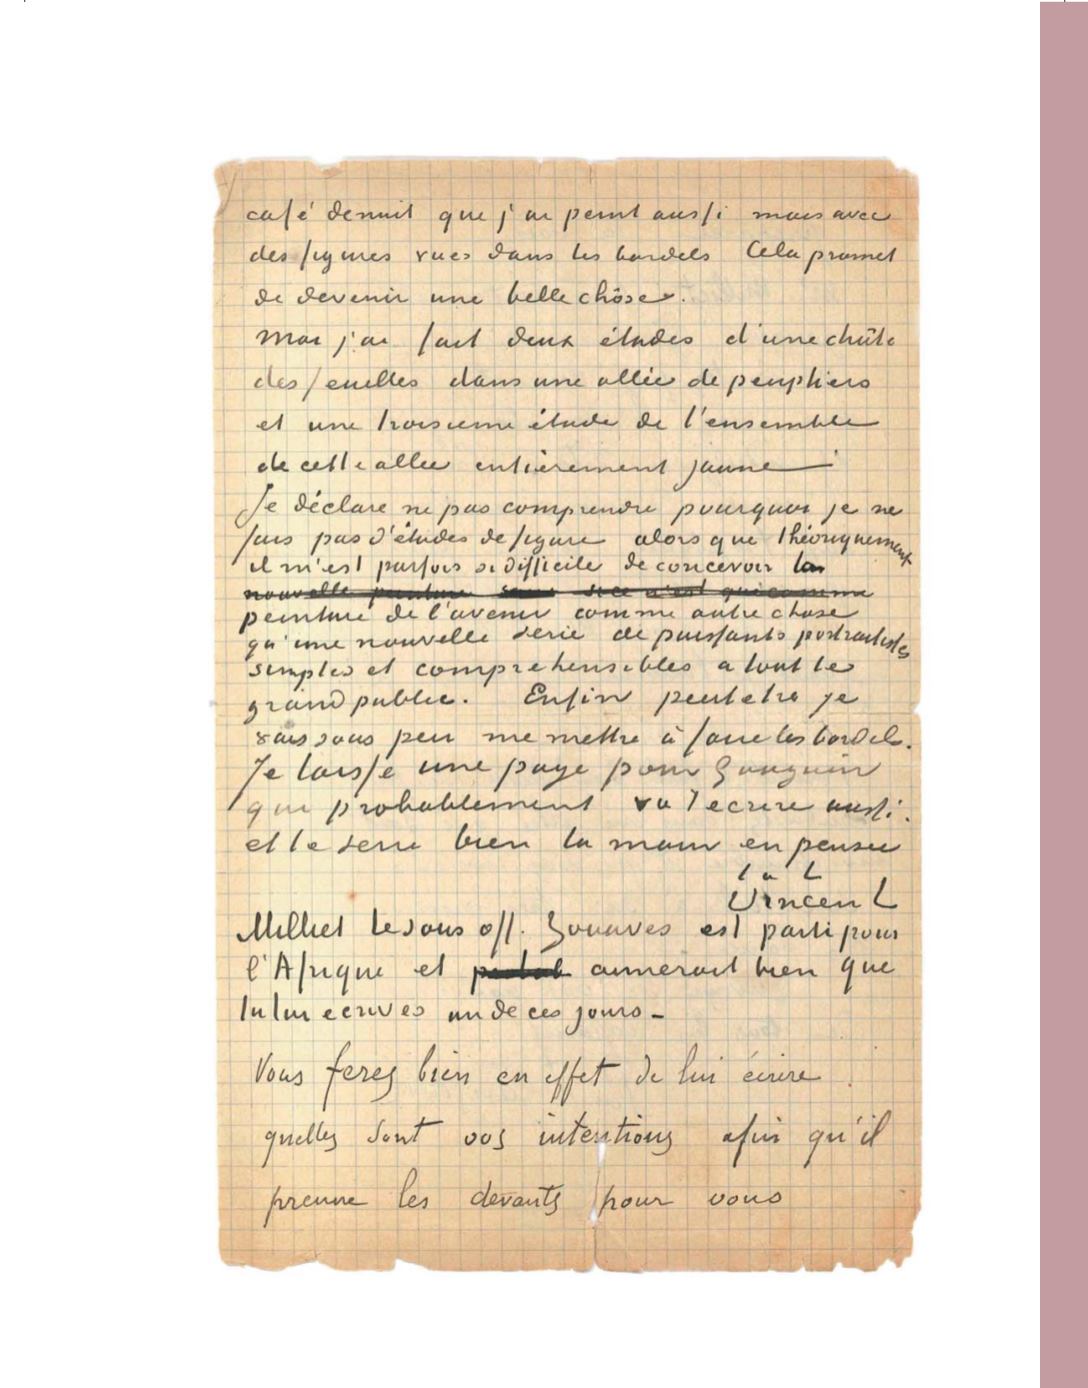 café de nuit que j'ai peint aussi mais avec
des figures vues dans les bordels Cela promet
de devenir une belle chôse.
Moi j'ai fait deux études d'une chûte
des feuilles dans une allée de peupliers
et une troisieme étude de l'ensemble
de cette allee entièrement jaune —
Je déclare ne pas comprendre pourquoi je ne
fais pas d'études de figure alors que théoriquement
il m'est parfois si difficile de concevoir la
nouvelle peinture sans si ce n'est que comme
peinture de l'avenir comme autre chose
qu'une nouvelle serie de puissants portraitistes
simples et comprehensibles a tout le
grand public. Enfin peutetre je
vais sous peu me mettre à faire les bordels.
Je laisse une page pour Gauguin
qui probablement va t'ecrire aussi.
et te serre bien la main en pensée
t à t
Vincent
Milliet le sous off. Zouaves est parti pour
l'Afrique et aimerait bien que
tu lui ecrives un de ces jours —
Vous ferez bien en effet de lui écrire
quelles sont vos intentions afin qu'il
prenne les devants pour vous